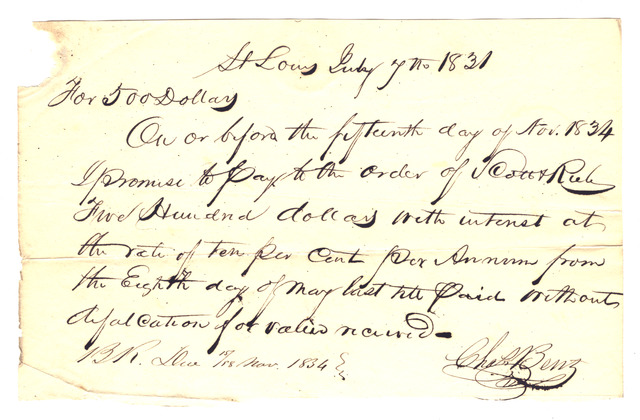 St Louis July 7th 1831
For 500 Dollars
On or before the fifteenth day of Nov. 1834
I promise to Pay to the order of Scott & Rule
Five Hundred dollars with interest at
the rate of ten per Cent per Annum from
the Eighth day of May last till Paid without
defalcation for value received
BR. Due Nov. 1834
Chas Bent